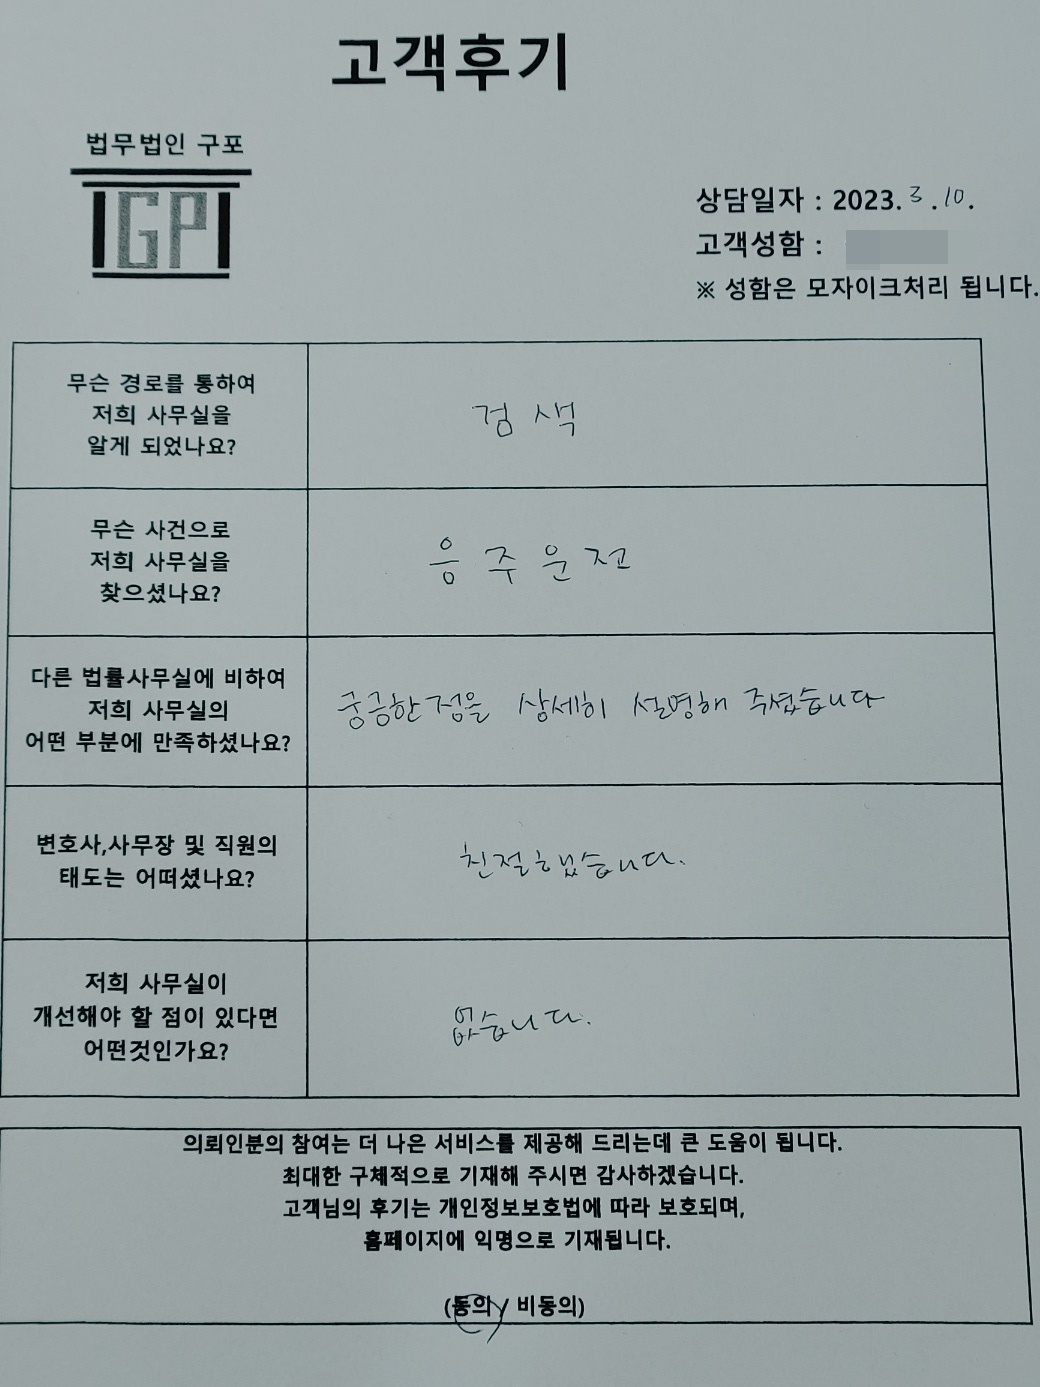 고객후기
법무법인 구포
IGPI
상담일자 : 2023. 3 . 10.
고객성함 :
※ 성함은 모자이크처리 됩니다.
무슨 경로를 통하여
저희 사무실을
알게 되었나요?
검색
무슨 사건으로
저희 사무실을
찾으셨나요?
음주운전
다른 법률사무실에 비하여
저희 사무실의
어떤 부분에 만족하셨나요?
궁금한 점을 상세히 설명해 주셨습니다
변호사,사무장 및 직원의
태도는 어떠셨나요?
친절했습니다.
저희 사무실이
개선해야 할 점이 있다면
어떤것인가요?
없습니다.
의뢰인분의 참여는 더 나은 서비스를 제공해 드리는데 큰 도움이 됩니다.
최대한 구체적으로 기재해 주시면 감사하겠습니다.
고객님의 후기는 개인정보보호법에 따라 보호되며,
홈페이지에 익명으로 기재됩니다.
(동의 / 비동의)